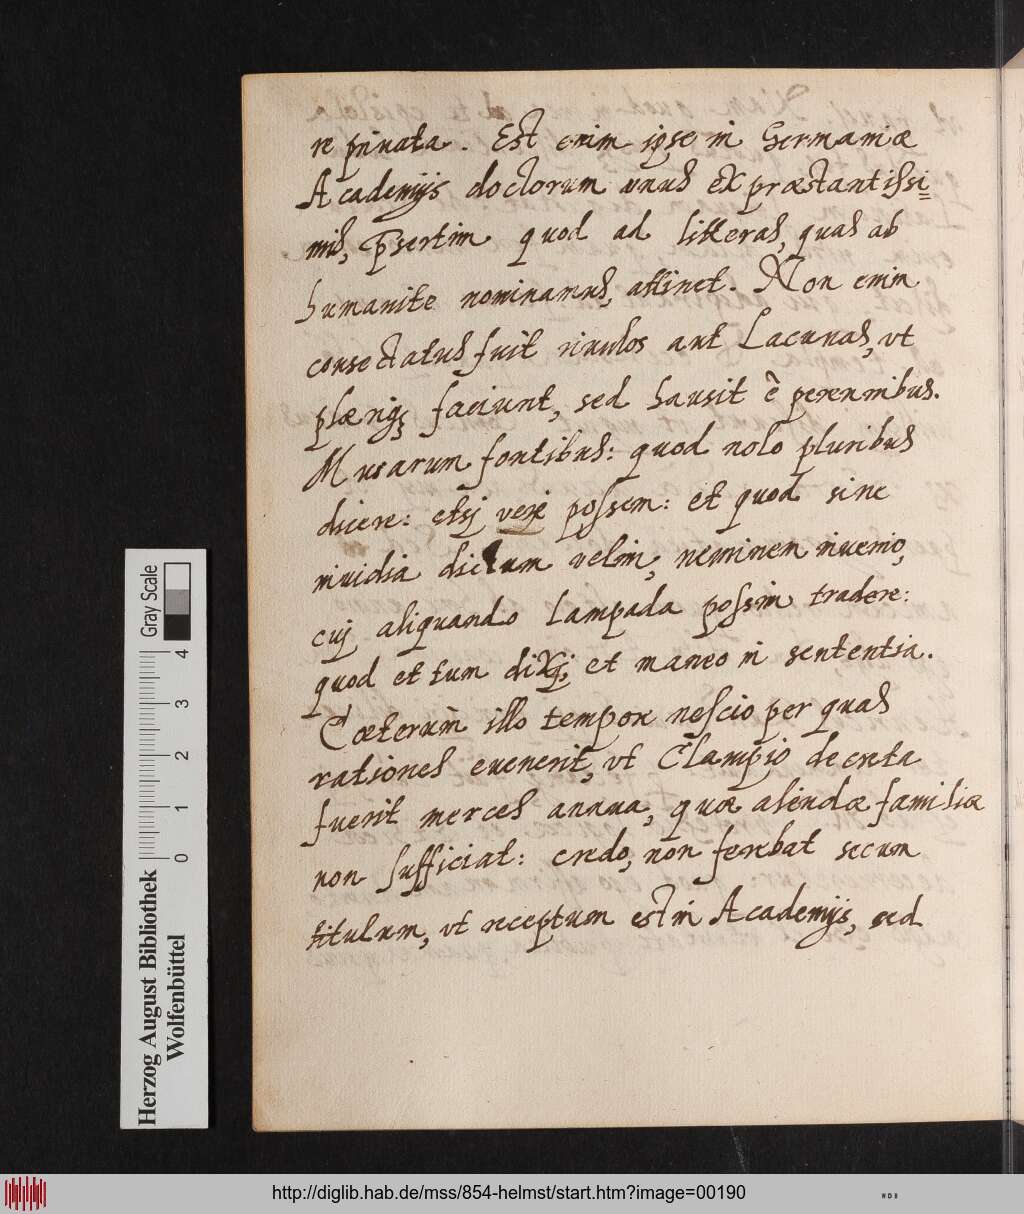 re priuata. Est enim ipse in Germaniæ
Academijs doctorum unus ex præstantissi=
mis, p̄sertim quod ad litteras, quas ab
humanite nominamus, attinet. Non enim
consectatus fuit riuulos aut Lacunas, vt
plæriq; faciunt, sed hausit è perennibus.
Musarum fontibus: quod nolo pluribus
dicere: etsj verè possem: et quod sine
inuidia dictum velim, neminem inuenio,
cuj aliquando lampada possim tradere:
quod et tum dixj, et maneo in sententia.
Cœterùm illo tempore nescio per quas
rationes euenerit, vt Clampio decreta
fuerit merces annua, quæ alendæ familiæ
non sufficiat: credo, non ferebat secum
titulum, vt receptum est in Academijs, sed
Herzog August Bibliothek
Wolfenbüttel
Gray Scale
0 1 2 3 4
http://diglib.hab.de/mss/854-helmst/start.htm?image=00190